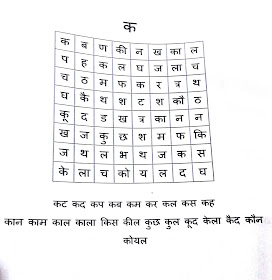 क
क ब ण की न ख का ल
प ह क ल घ ज ला च
च ठ म फ क र त्र थ
घ कै थ श ट श कौ ठ
कू द ड ख त्र का न न
ख ज कु छ श म फ कि
ज थ ल भ थ ज क स
के ला च को य ल द घ
कट कद कप कब कम कर कल कस कह
कान काम काल काला किस कील कुछ कुल कूद केला कैद कौन
कोयल